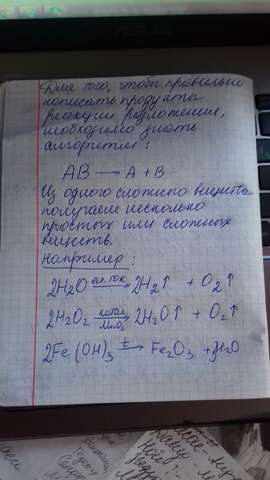 Для того, чтобы правильно
написать продукты
реакции разложения,
необходимо знать
алгоритм:
AB → A + B
Из одного сложного вещества
получаем несколько
простых или сложных
веществ.
Например:
2H₂O эл. ток → 2H₂↑ + O₂↑
2H₂O₂ MnO₂ → 2H₂O↑ + O₂↑
2Fe(OH)₃ t → Fe₂O₃ + 3H₂O